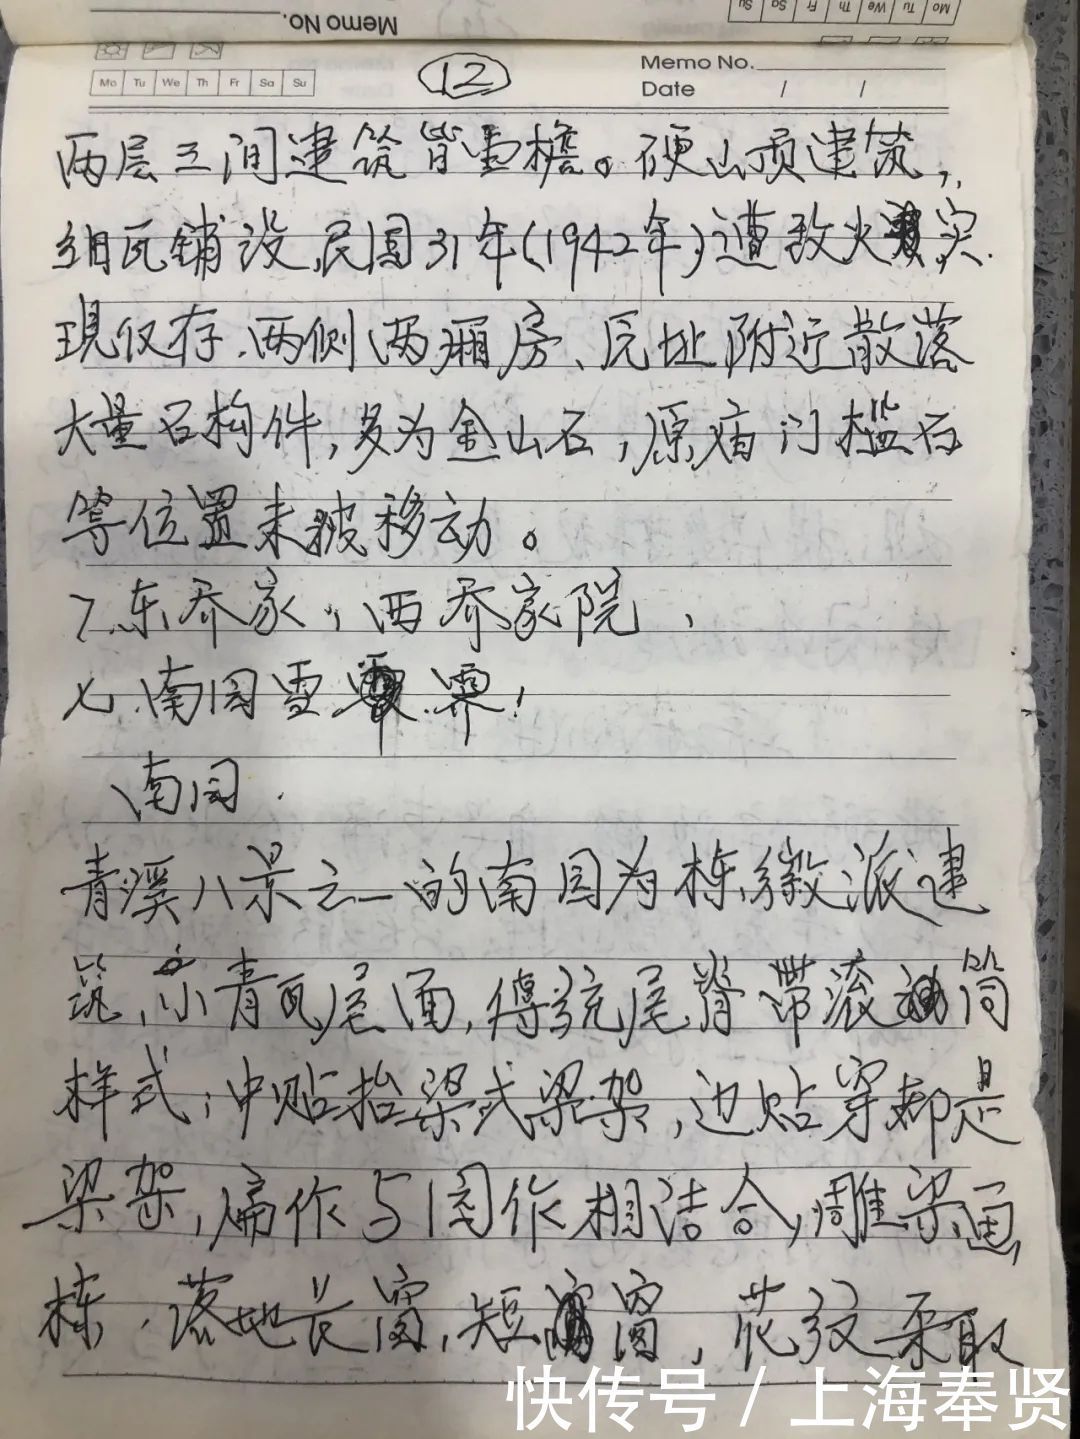 Memo No.
Mo Tu We Th Fr Sa Su
Mo Tu We Th Fr Sa Su
12
Memo No.
Date / /
两层三间建筑皆重檐。硬山顶建筑,
细瓦铺设,民国31年(1942年)遭致火灾.
现仅存.两侧两厢房、瓦址附近散落
大量石构件,多为金山石,原庙门槛石
等位置未被移动。
7.东乔家,西乔家院、
七.南园雪霁!
南园.
青溪八景之一的南园为栋,徽派建
筑,小青瓦屋面,傅统尾脊带滚筒
样式;中贴抬梁式梁架,边贴穿都是
梁架,扁作与圆作相结合,雕梁画
栋.落地长窗,短窗,花纹采取
快传号 / 上海奉贤